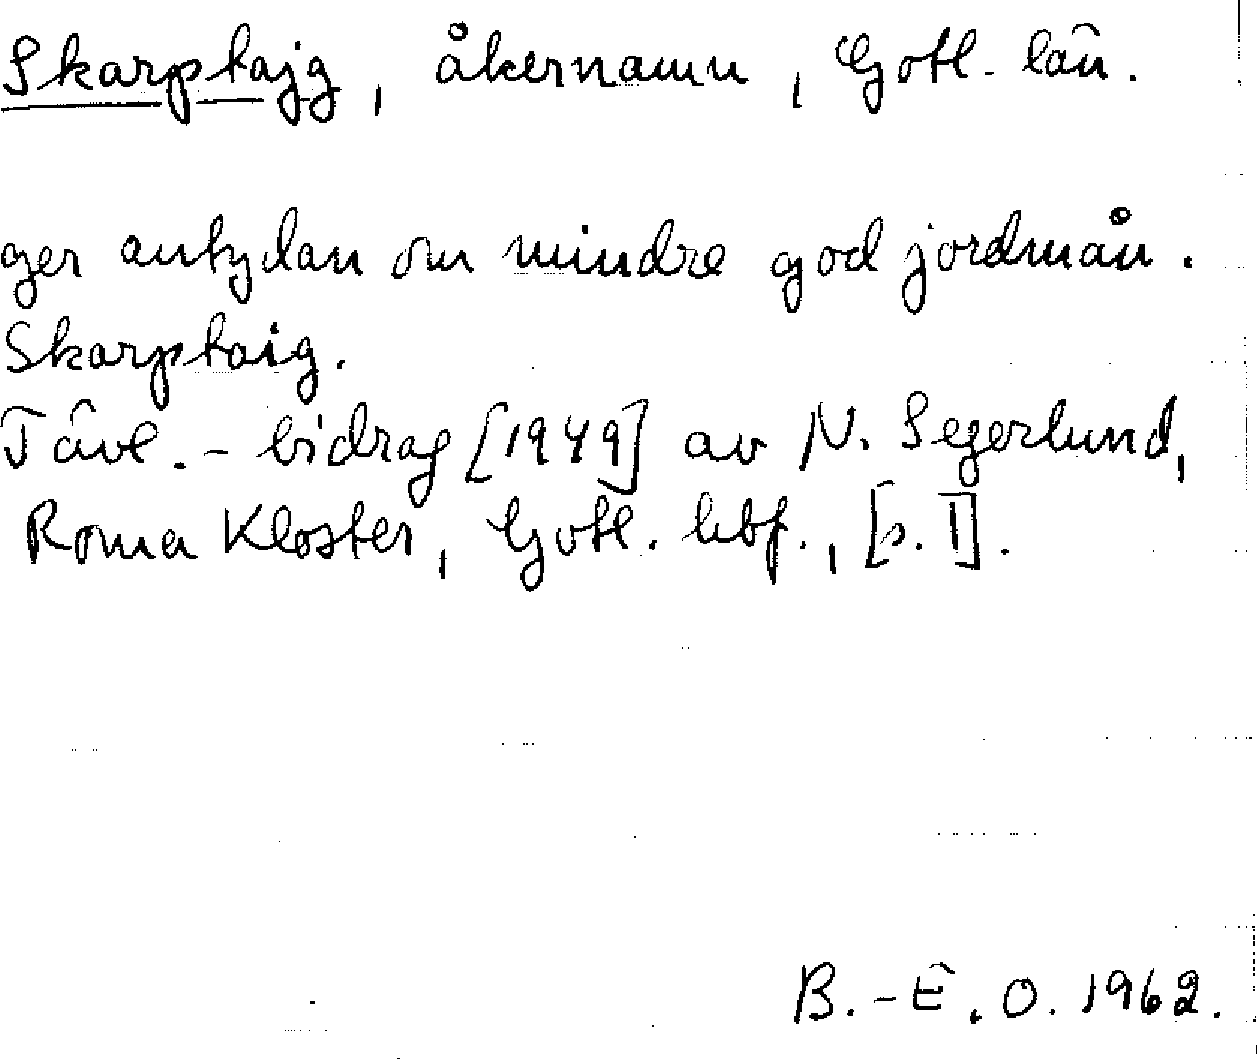 Skarptajg, åkernamn, Gotl. län.
ger antydan om mindre god jordmån.
Skarptaig.
Tävl.-bidrag [1949] av N. Segerlund,
Roma Kloster, Gotl. hbf., [s. 1].
B.-E. O. 1962.